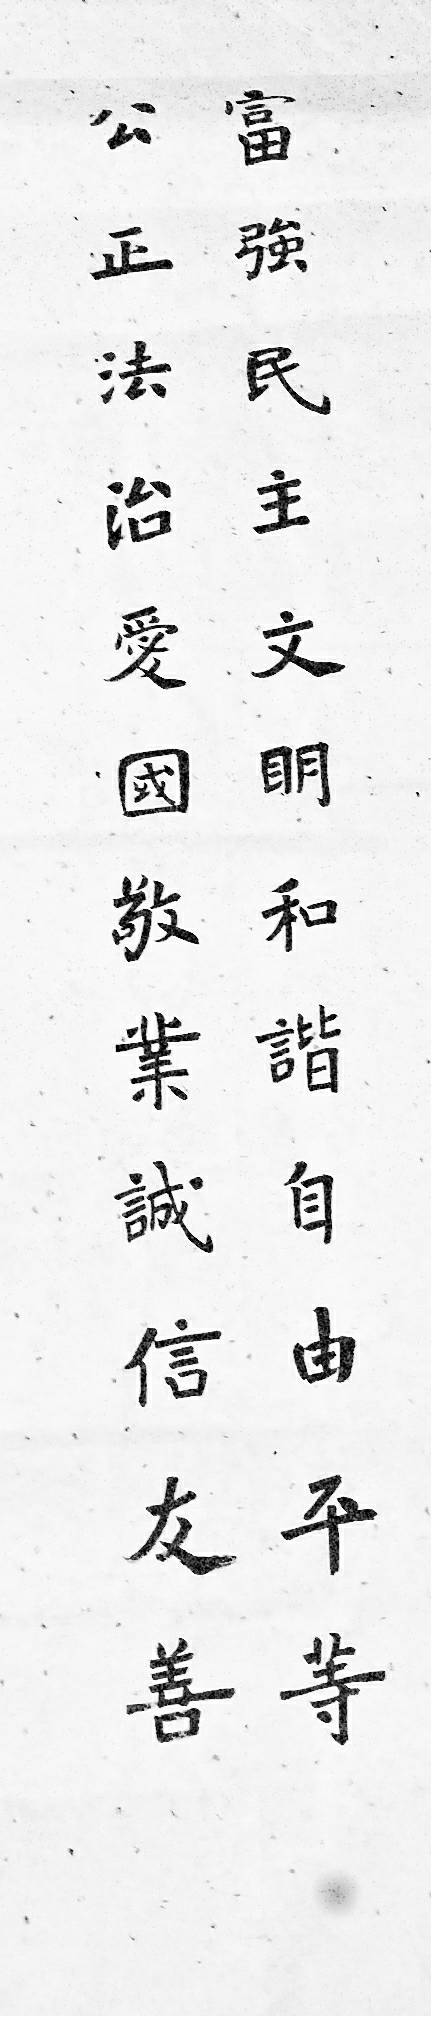 富強民主文明和諧自由平等
公正法治愛國敬業誠信友善